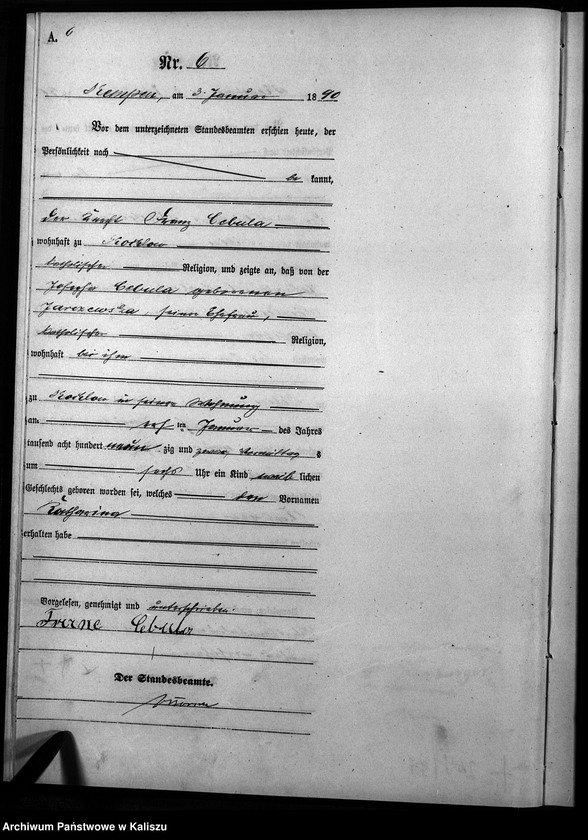 A. 6
Nr. 6
Kempen, am 3. Januar 1890
Vor dem unterzeichneten Standesbeamten erschien heute, der
Persönlichkeit nach
be kannt,
der Franz Cebula
wohnhaft zu
katholischer Religion, und zeigte an, daß von der
Josepha Cebula geborenen
Jarczewska, seiner Ehefrau,
katholischer Religion,
wohnhaft bei ihm
zu in seiner Wohnung
am ten Januar des Jahres
tausend acht hundert neun zig und zwar Vormittag s
um sechs Uhr ein Kind weib lichen
Geschlechts geboren worden sei, welches den Vornamen
Katharina
erhalten habe
Vorgelesen, genehmigt und unterschrieben.
Der Standesbeamte.
Archiwum Państwowe w Kaliszu